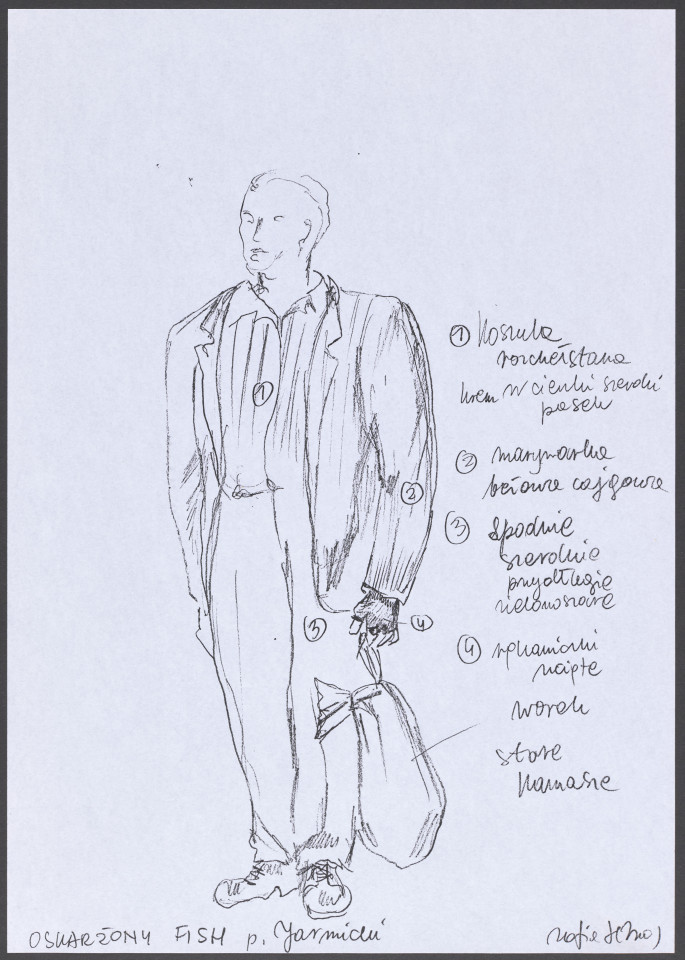 ① Koszula
rozchełstana
krem w cienki szeroki
pasek
② marynarka
beżowa cajgowa
③ spodnie
szerokie
przydługie
zielonoszare
④ rękawiczki
ucięte
worek
stare
kamasze
①
②
③
④
OSKARŻONY FISH p. Jarmicki
Zofia